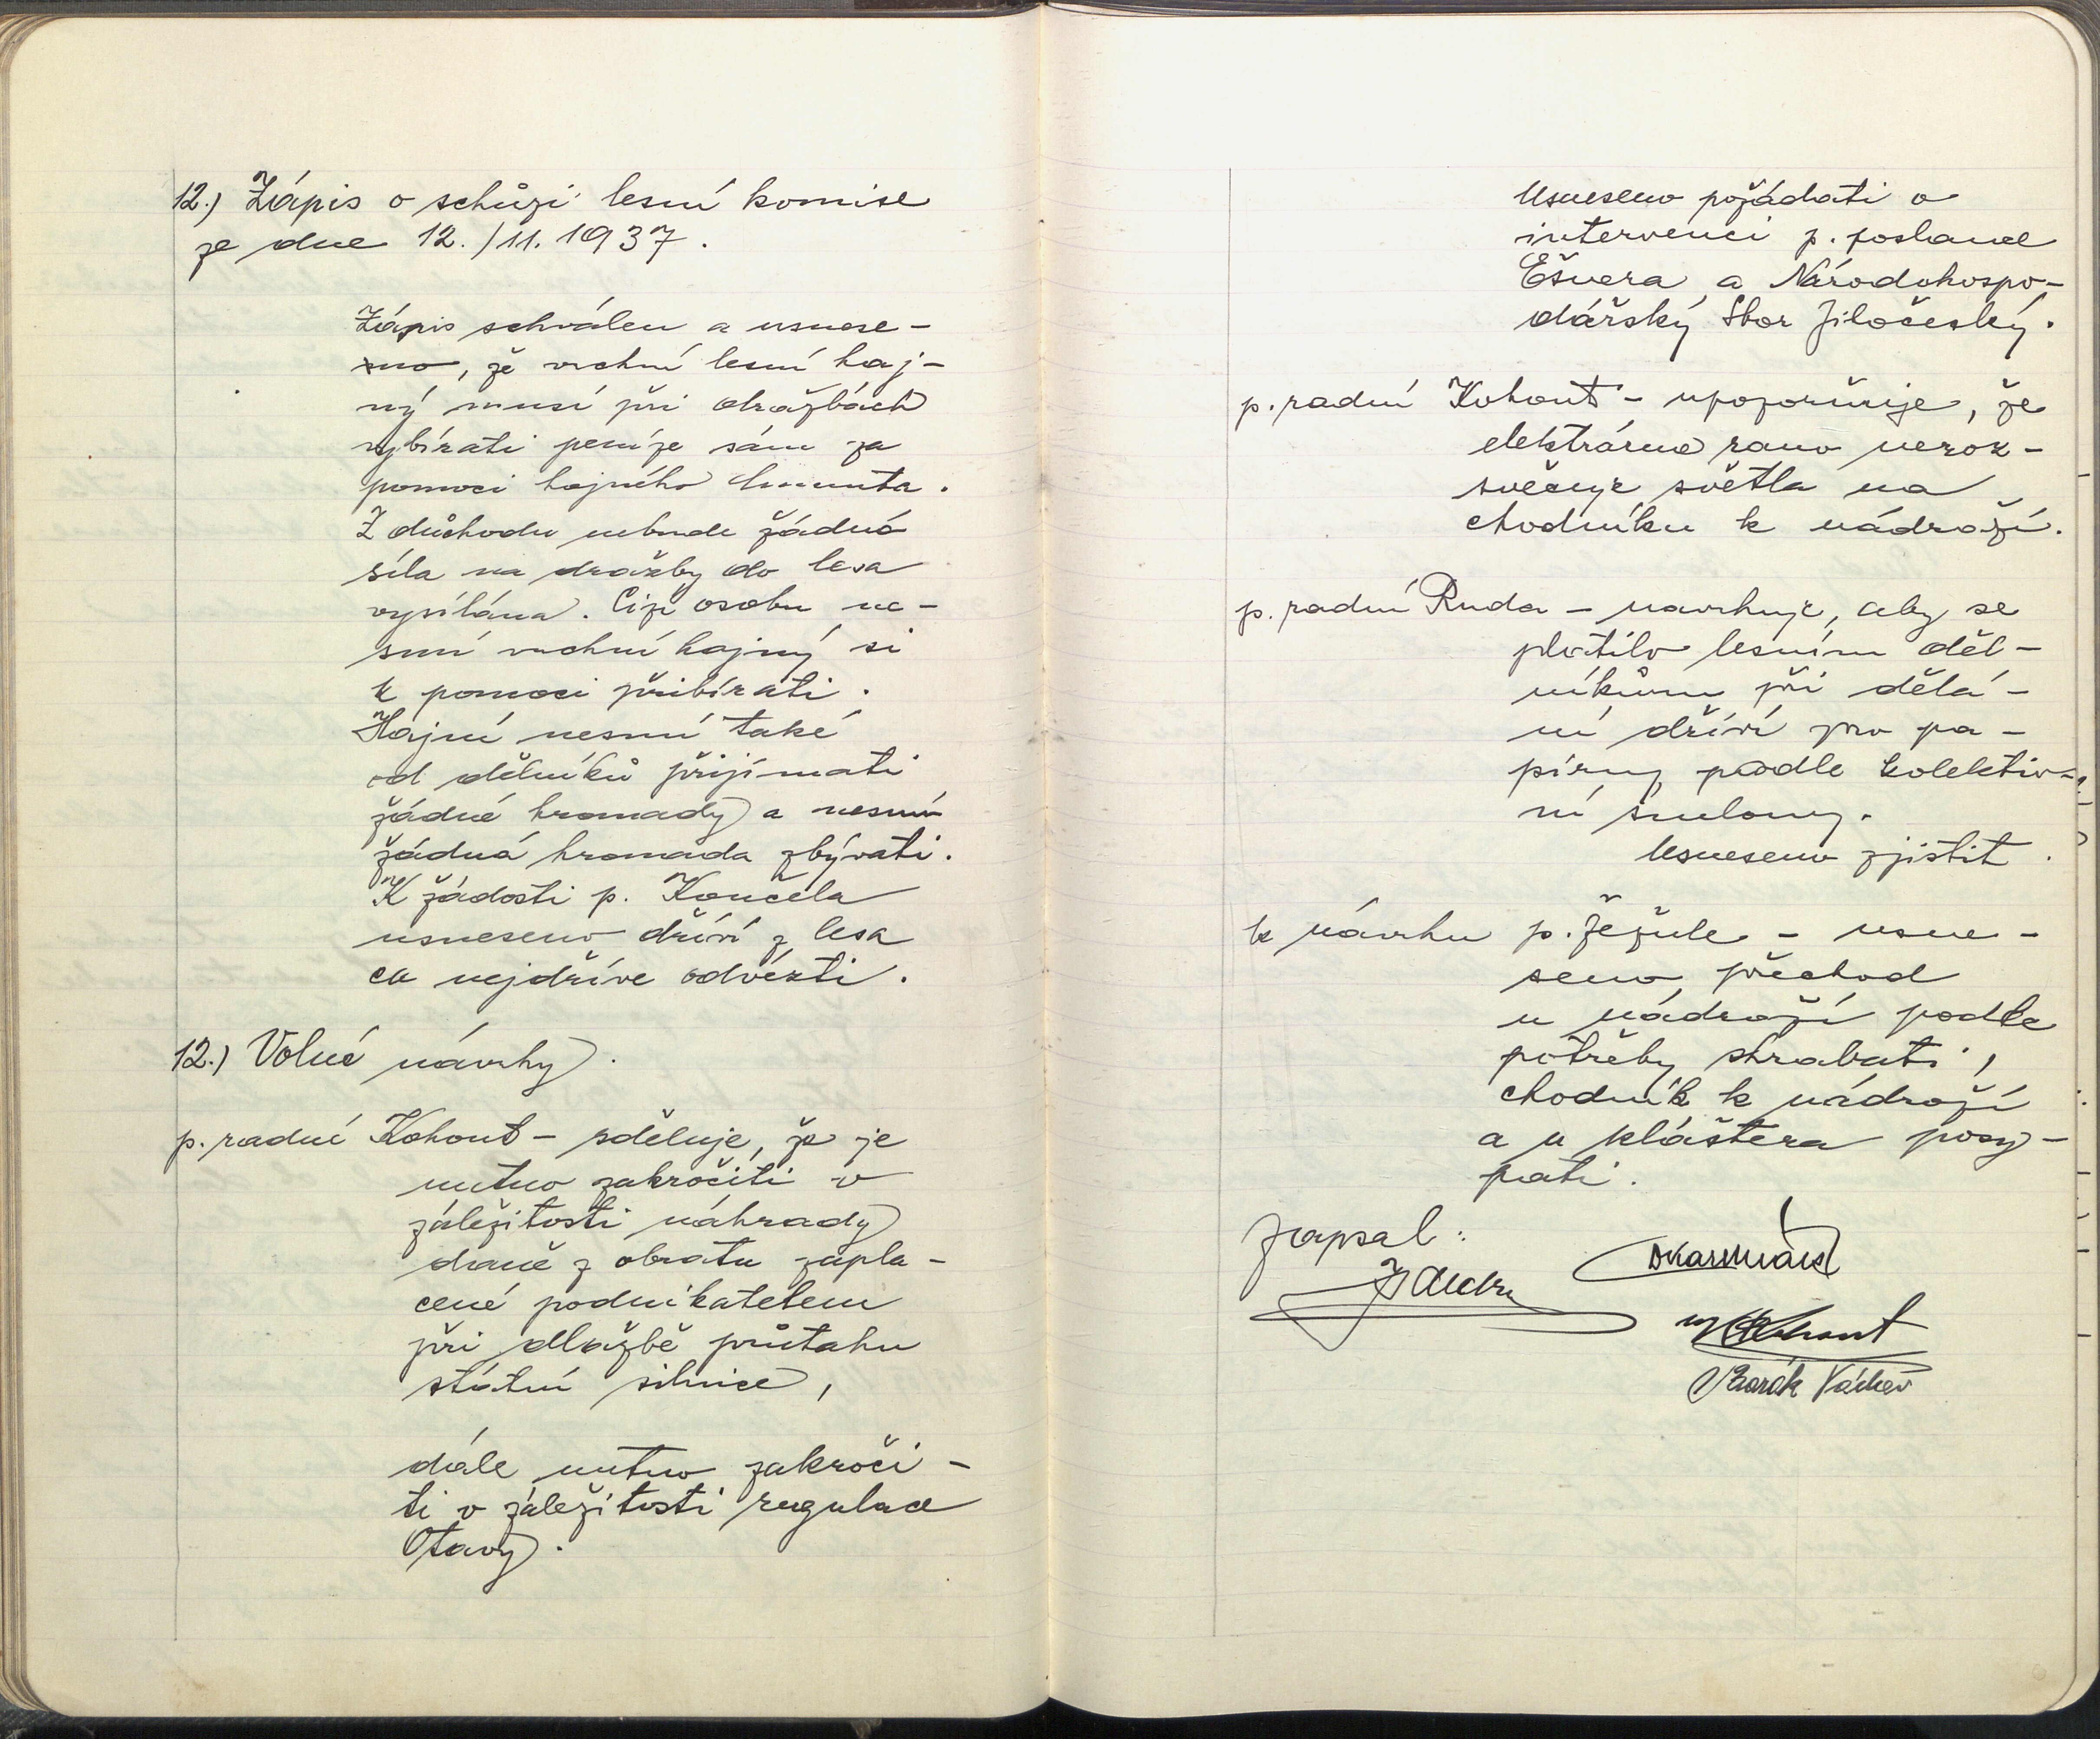 12.) Zápis o schůzi lesní komise
ze dne 12./11. 1937.
Zápis schválen a usnese-
no, že vrchní lesní haj-
ný musí při dražbách
vybírati peníze sám za
pomoci hajného
Z důchodu nebude žádná
síla na dražby do lesa
vysílána. Cizí osobu ne-
smí vrchní hajný si
k pomoci přibírati.
Hajní nesmí také
od dělníků přijímati
žádné hromady a nesmí
žádná hromada zbývati.
K žádosti p. Koučela
usneseno dříví z lesa
co nejdříve odvézti.
12.) Volné návrhy.
p. radní Kohout - sděluje, že je
nutno zakročiti v
záležitosti náhrady
daně z obratu zapla-
cené podnikatelem
při dlažbě průtahu
státní silnice,
dále nutno zakroči-
ti v záležitosti regulace
Otavy.
Usneseno požádati o
intervenci p. poslance
a Národohospo-
dářský Sbor Jihočeský.
p. radní Kohout - upozorňuje, že
elektrárna rano neroz-
svěcuje světla na
chodníku k nádraží.
p. radní Ruda - navrhuje, aby se
platilo lesním děl-
níkům při dělá-
ní dříví pro pa-
pírny podle kolektiv-
ní smlouvy.
Usneseno zjistit.
k návrhu p. Řežule - usne-
seno přechod
u nádraží podle
potřeby shrabati,
chodník k nádraží
a u kláštera posy-
pati.
Zapsal:
Kohout